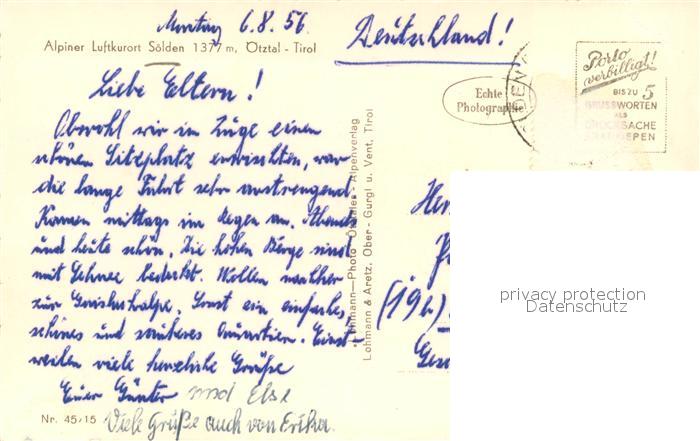 Montag 6.8.56
Deutschland!
Alpiner Luftkurort Sölden 1377 m, Ötztal - Tirol
Liebe Eltern!
Obwohl wir im Zuge einen
schönen Sitzplatz erwischten, war
die lange Fahrt sehr anstrengend.
Kamen mittags im Regen an. Abends
und heute schön. Die hohen Berge sind
mit Schnee bedeckt. Wollen nachher
zur. Sonst ein einfaches,
schönes und sauberes Quartier. Einst-
weilen viele herzliche Grüße
Euer Günter und Else
Viele Grüße auch von Erika.
Nr. 45/15
Lohmann—Photo - Alpenverlag
Lohmann & Aretz, Ober - Gurgl u. Vent, Tirol
Echte
Photographie
Porto
verbilligt!
BIS ZU 5
GRUSSWORTEN
ALS
DRUCKSACHE
privacy protection
Datenschutz